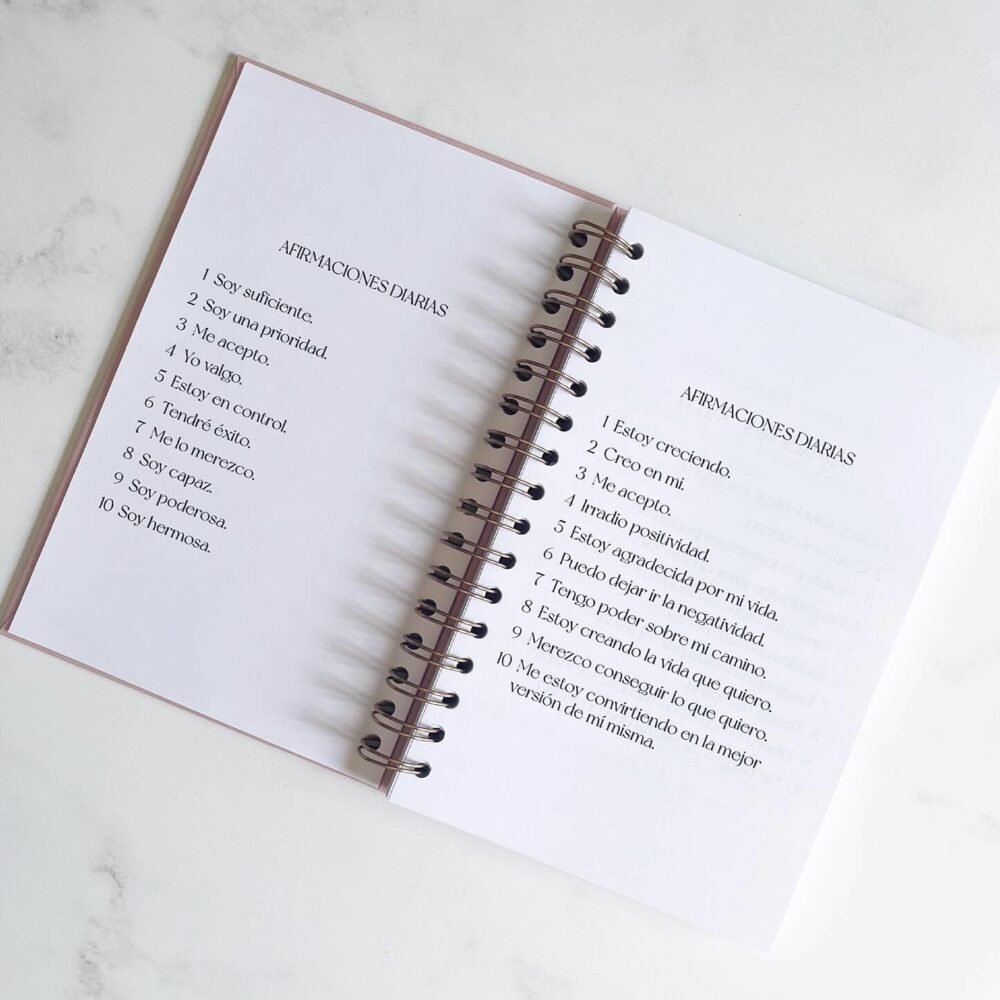 AFIRMACIONES DIARIAS
1 Soy suficiente.
2 Soy una prioridad.
3 Me acepto.
4 Yo valgo.
5 Estoy en control.
6 Tendré éxito.
7 Me lo merezco.
8 Soy capaz.
9 Soy poderosa.
10 Soy hermosa.
AFIRMACIONES DIARIAS
1 Estoy creciendo.
2 Creo en mi.
3 Me acepto.
4 Irradio positividad.
5 Estoy agradecida por mi vida.
6 Puedo dejar ir la negatividad.
7 Tengo poder sobre mi camino.
8 Estoy creando la vida que quiero.
9 Merezco conseguir lo que quiero.
10 Me estoy convirtiendo en la mejor
versión de mí misma.